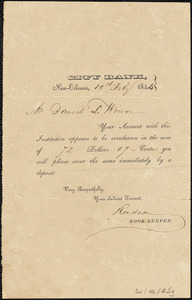 CITY BANK,
New-Orleans, 10th Feby 1844
Mr Daniel
Your Account with this
Institution appears to be overdrawn in the sum
of 72 Dollars 07 Cents; you
will please cover the same immediately by a
deposit.
Very Respectfully,
Your obedient Servant,
BOOK-KEEPER.